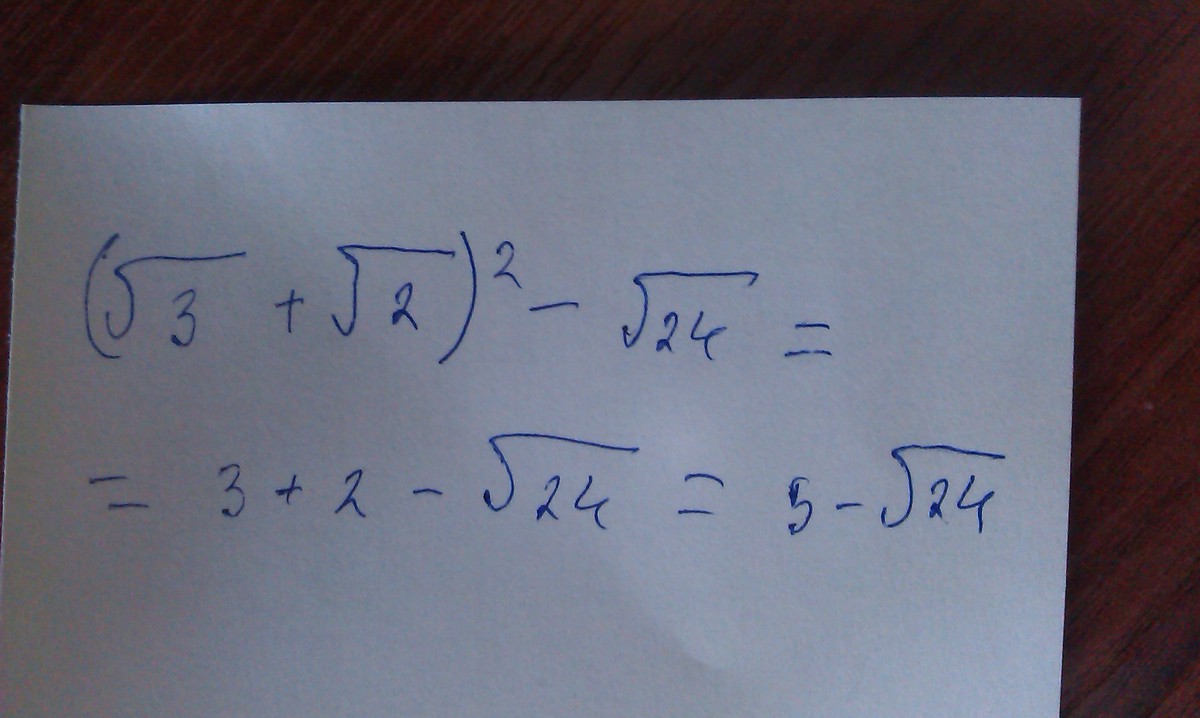 (√3 + √2)² - √24 =
= 3 + 2 - √24 = 5 - √24